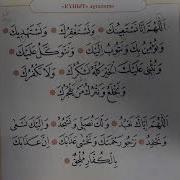 اَللَّهُمَّ إِنَّا نَسْتَعِينُكَ وَنَسْتَغْفِرُكَ وَنَسْتَهْدِيكَ
وَنُؤْمِنُ بِكَ وَنَتُوبُ إِلَيْكَ وَنَتَوَكَّلُ عَلَيْكَ
وَنُثْنِي عَلَيْكَ الْخَيْرَ كُلَّهُ نَشْكُرُكَ وَلَا نَكْفُرُكَ
وَنَخْلَعُ وَنَتْرُكُ مَنْ يَفْجُرُكَ
اَللَّهُمَّ إِيَّاكَ نَعْبُدُ وَلَكَ نُصَلِّي وَنَسْجُدُ وَإِلَيْكَ نَسْعَى
وَنَحْفِدُ نَرْجُو رَحْمَتَكَ وَنَخْشَى عَذَابَكَ إِنَّ عَذَابَكَ
بِالْكُفَّارِ مُلْحِقٌ